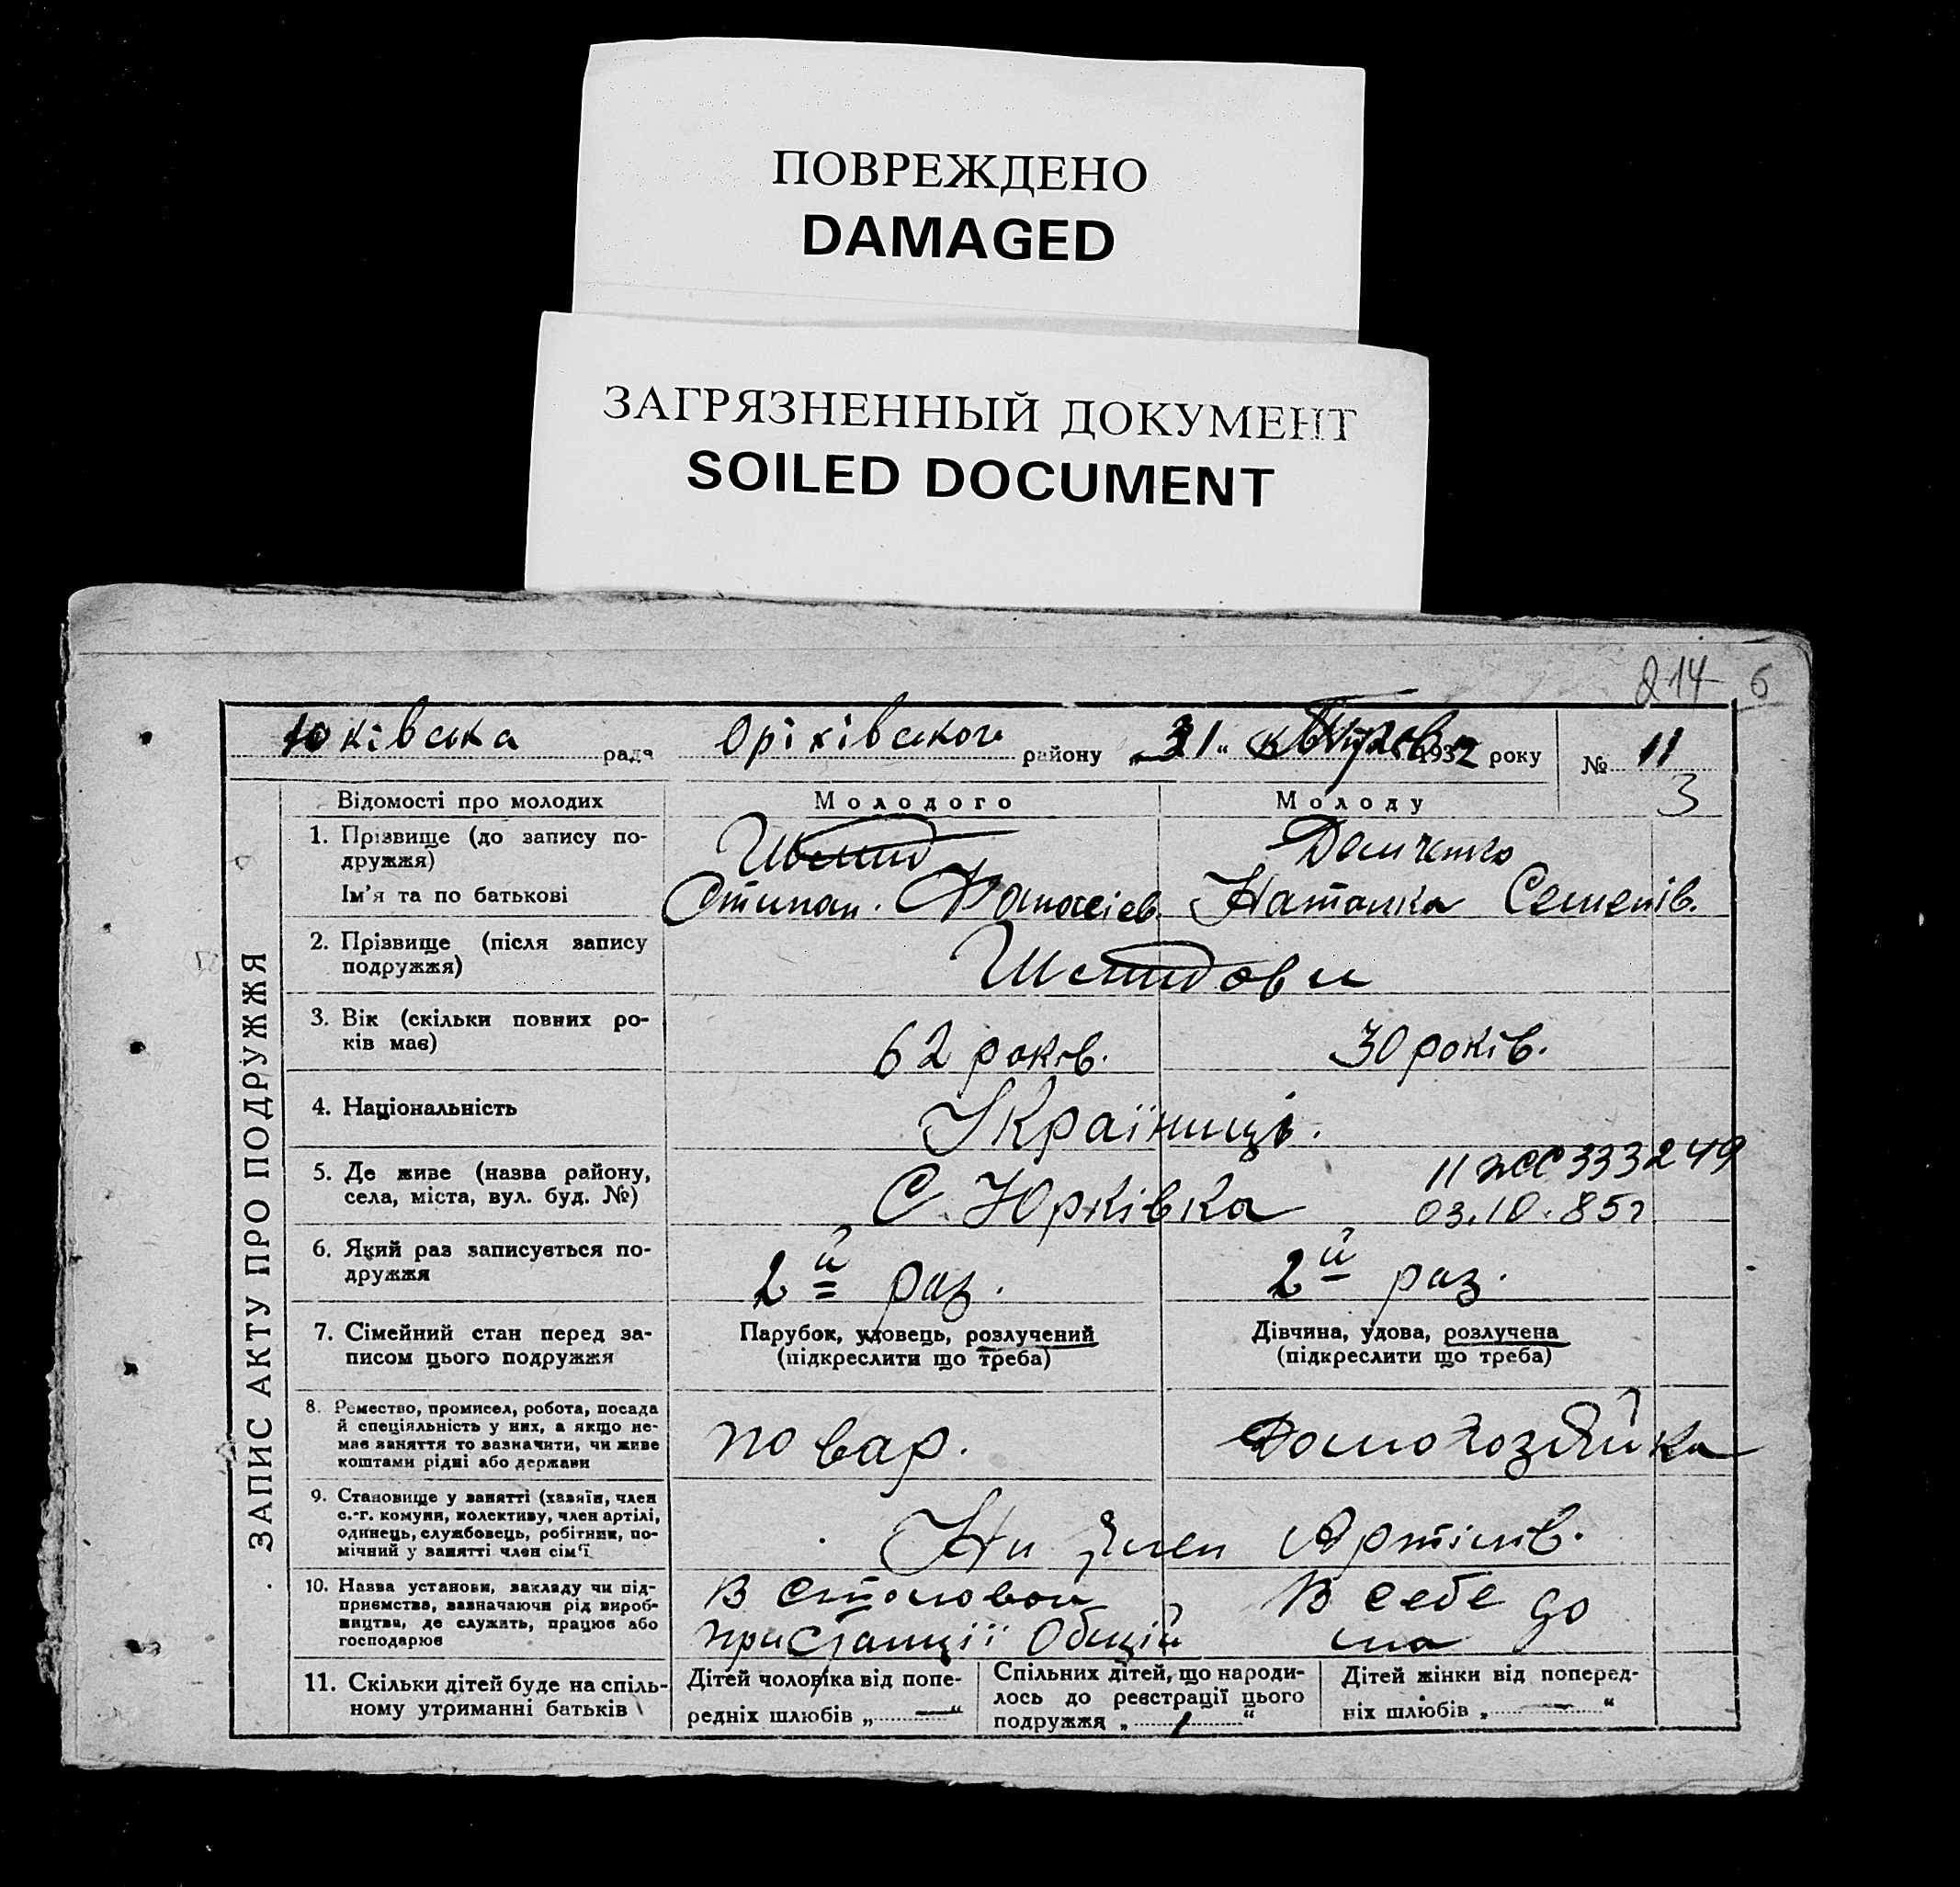 ПОВРЕЖДЕНО
DAMAGED
ЗАГРЯЗНЕННЫЙ ДОКУМЕНТ
SOILED DOCUMENT
214 6
Юківська рада Оріхівського району 21" 1932 року № 11
3
ЗАПИС АКТУ ПРО ПОДРУЖЖЯ
Відомості про молодих Молодого Молоду
1. Прізвище (до запису по-
дружжя)
Демченко
Ім'я та по батькові
Наталка Семенів.
2. Прізвище (після запису
подружжя)
3. Вік (скільки повних ро-
ків має)
62 років. 30 років.
4. Національність
Українці.
5. Де живе (назва району,
села, міста, вул. буд. №)
С. Юрківка
333249
03.10.85г
6. Який раз записується по-
дружжя
2й раз. 2й раз.
7. Сімейний стан перед за-
писом цього подружжя
Парубок, удовець, розлучений
(підкреслити що треба)
Дівчина, удова, розлучена
(підкреслити що треба)
8. Ремество, промисел, робота, посада
й спеціяльність у них, а якщо не-
має заняття то зазначити, чи живе
коштами рідні або держави
повар. Домохозяйка
9. Становище у занятті (хазяїн, член
с.-г. комуни, колективу, член артілі,
одинець, службовець, робітник, по-
мічний у занятті член сім'ї
Ни член Артілів.
10. Назва установи, закладу чи під-
приємства, зазначаючи рід вироб-
ництва, де служить, працює або
господарює
В столовой
при станції
В себе до
ма
11. Скільки дітей буде на спіль-
ному утриманні батьків
Дітей чоловіка від попе-
редніх шлюбів „ — “
Спільних дітей, що народи-
лось до реєстрації цього
подружжя „ 1 “
Дітей жінки від поперед-
ніх шлюбів „ — “